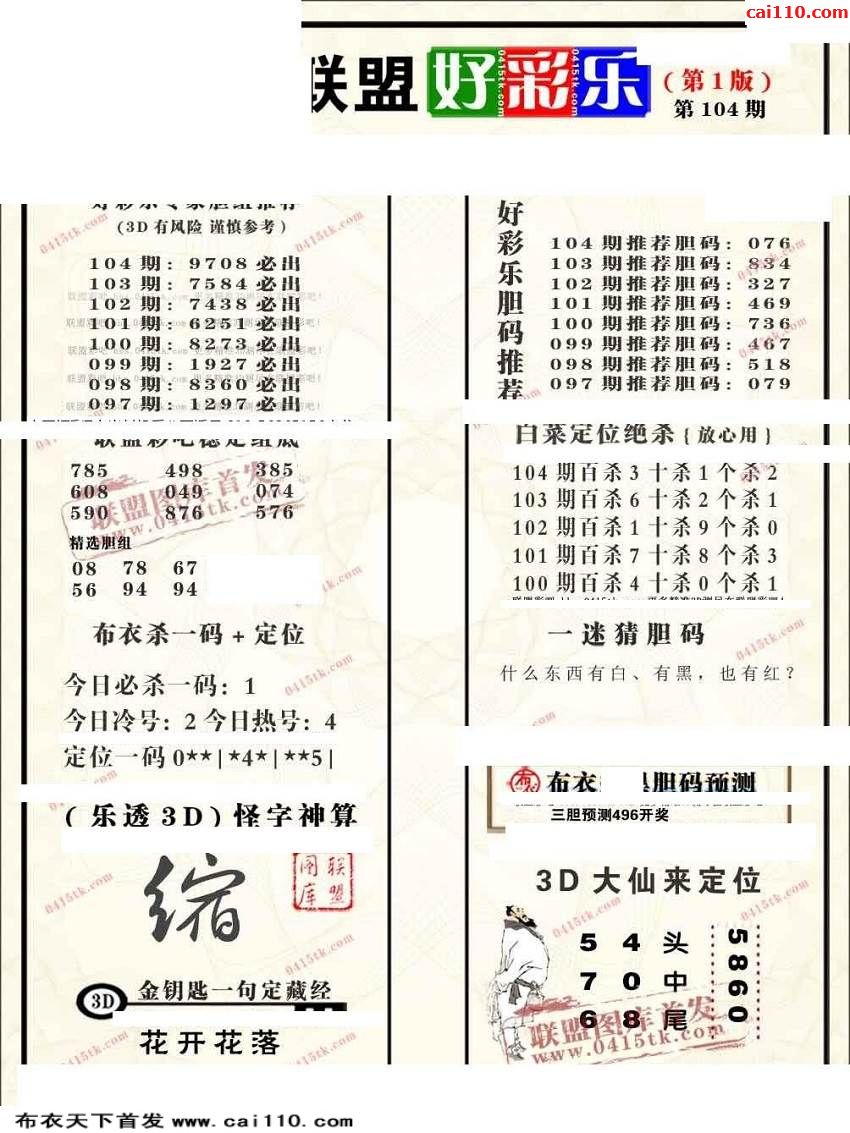 cai110.com
联盟 好彩乐 (第1版)
第104期
好彩乐专家胆组推荐
(3D有风险 谨慎参考)
104期: 9708必出
103期: 7584必出
102期: 7438必出
101期: 6251必出
100期: 8273必出
099期: 1927必出
098期: 8360必出
097期: 1297必出
好彩乐胆码推荐
104期推荐胆码: 076
103期推荐胆码: 834
102期推荐胆码: 327
101期推荐胆码: 469
100期推荐胆码: 736
099期推荐胆码: 467
098期推荐胆码: 518
097期推荐胆码: 079
联盟彩吧稳定组底
785 498 385
608 049 074
590 876 576
精选胆组
08 78 67
56 94 94
白菜定位绝杀{放心用}
104期百杀3十杀1个杀2
103期百杀6十杀2个杀1
102期百杀1十杀9个杀0
101期百杀7十杀8个杀3
100期百杀4十杀0个杀1
布衣杀一码+定位
今日必杀一码: 1
今日冷号: 2 今日热号: 4
定位一码0**|*4*|**5|
一迷猜胆码
什么东西有白、有黑，也有红？
(乐透3D)怪字神算
缩
联盟图库
3D 金钥匙一句定藏经
花开花落
布衣 胆码预测
三胆预测496开奖
3D大仙来定位
5 4 头
7 0 中
6 8 尾
5860
联盟图库首发
www.0415tk.com
布衣天下首发 www.cai110.com